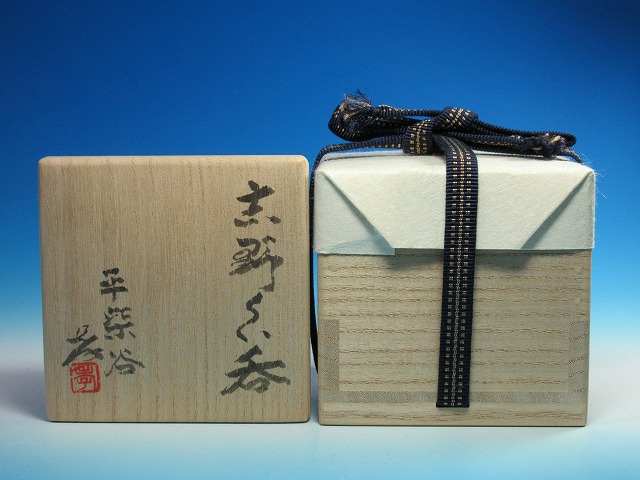 志野ぐい呑
平柴谷
孝